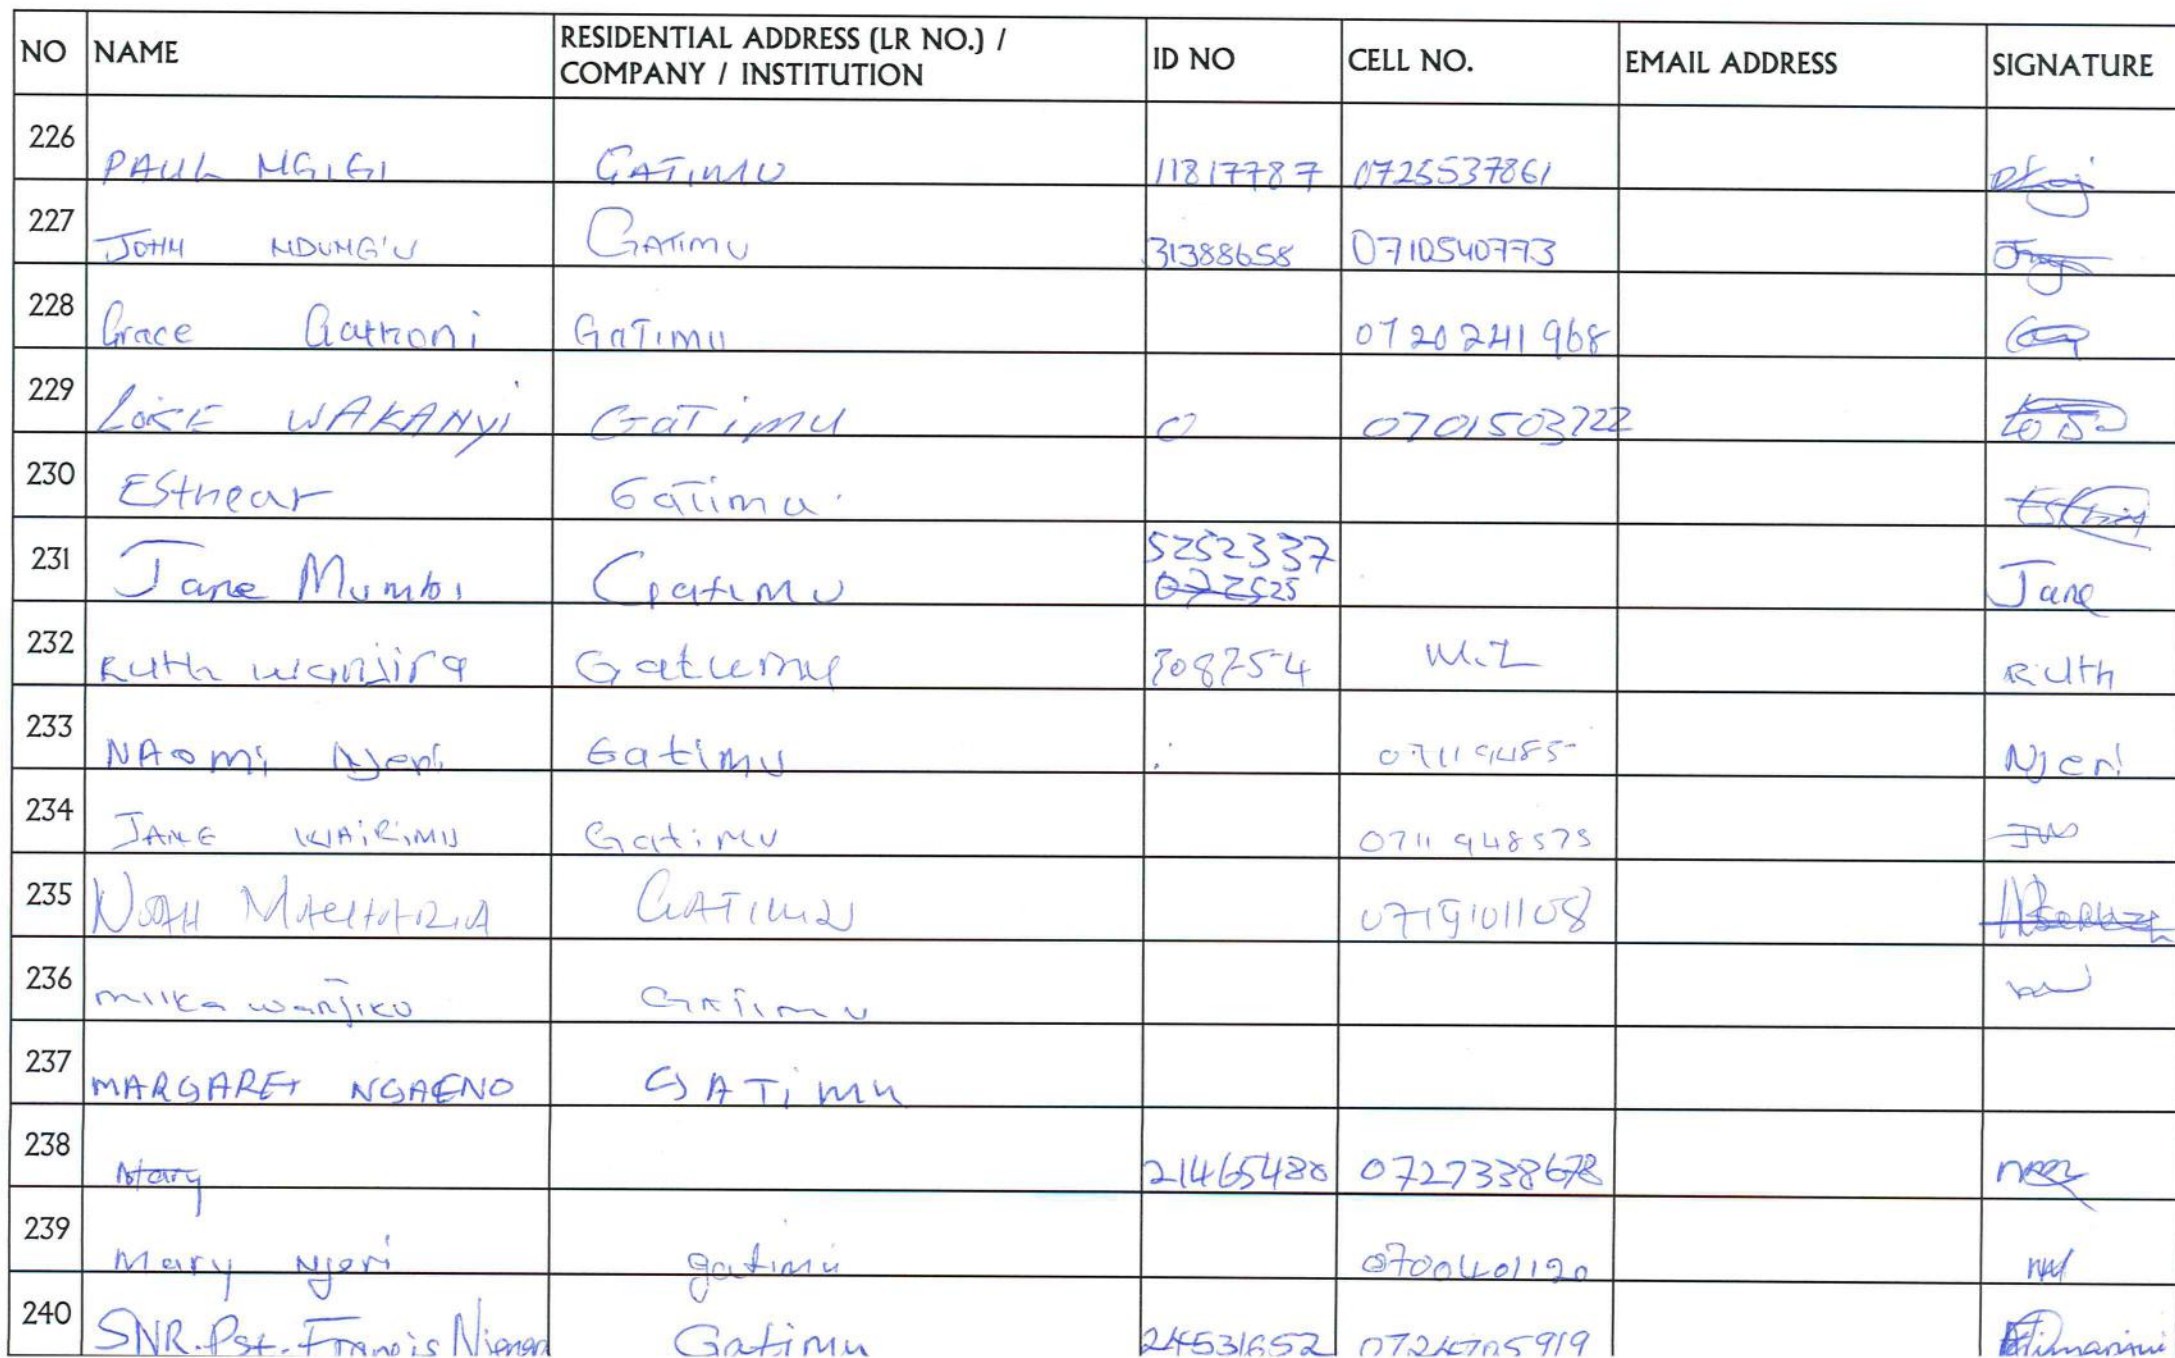 NO NAME RESIDENTIAL ADDRESS (LR NO.) / COMPANY / INSTITUTION ID NO CELL NO. EMAIL ADDRESS SIGNATURE
226 PAUL NGIGI GATIMU 11817787 0725537861
227 JOHN NDUNG'U GATIMU 31388658 0710540773
228 Grace Gathoni GaTimu 0720241968
229 LOISE WAKANYI GaTimu 0 0701503722
230 Esthear Gatimu.
231 Jane Mumbi Gatimu 5252337 Jane
232 Ruth wanjira Gatumu 708254 Ruth
233 NAomi Njeri Gatimu 07119485 Njeri
234 JANE WAIRIMU Gatimu 0711948575 JW
235 NOAH GATIMU 0719101108
236 milka wanjiku Gatimu
237 MARGARET NGAENO GATimu
238 Mary 21465480 0727338678
239 Mary Njeri gatimu 0700401120
240 SNR. Pst. Francis Gatimu 24531652 0724705919